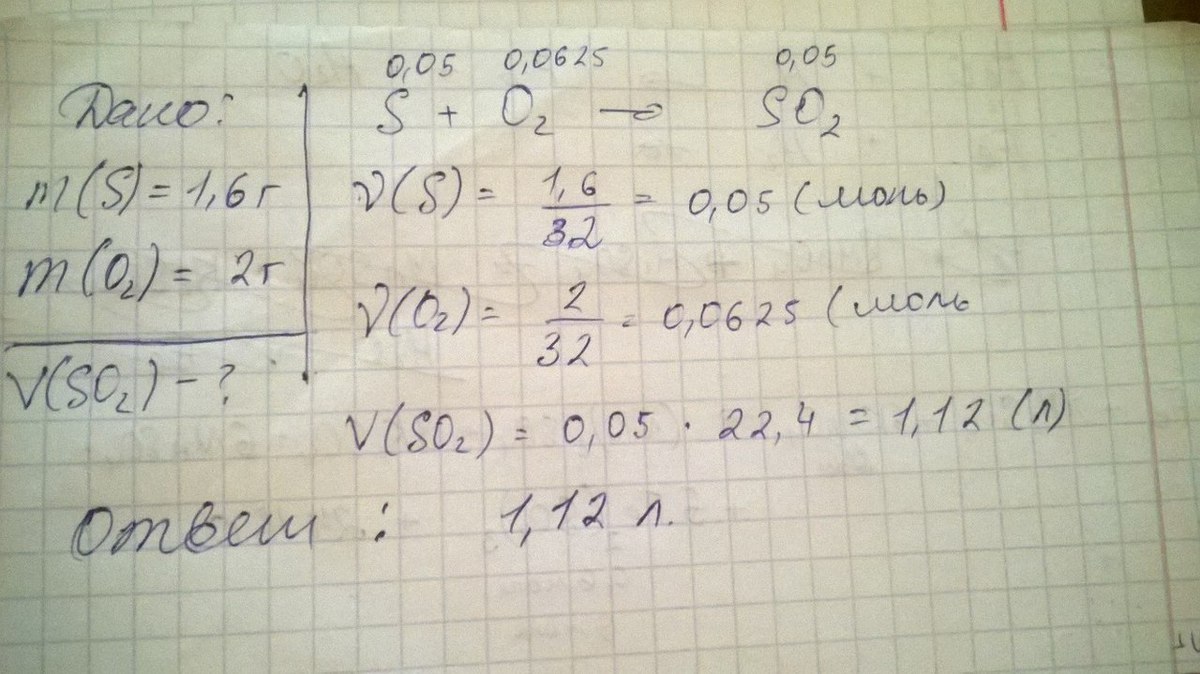 Дано:
m(S) = 1,6 г
m(O₂) = 2 г
V(SO₂) - ?
0,05 0,0625 0,05
S + O₂ → SO₂
ν(S) = 1,6/32 = 0,05 (моль)
ν(O₂) = 2/32 = 0,0625 (моль
V(SO₂) = 0,05 · 22,4 = 1,12 (л)
Ответ : 1,12 л.